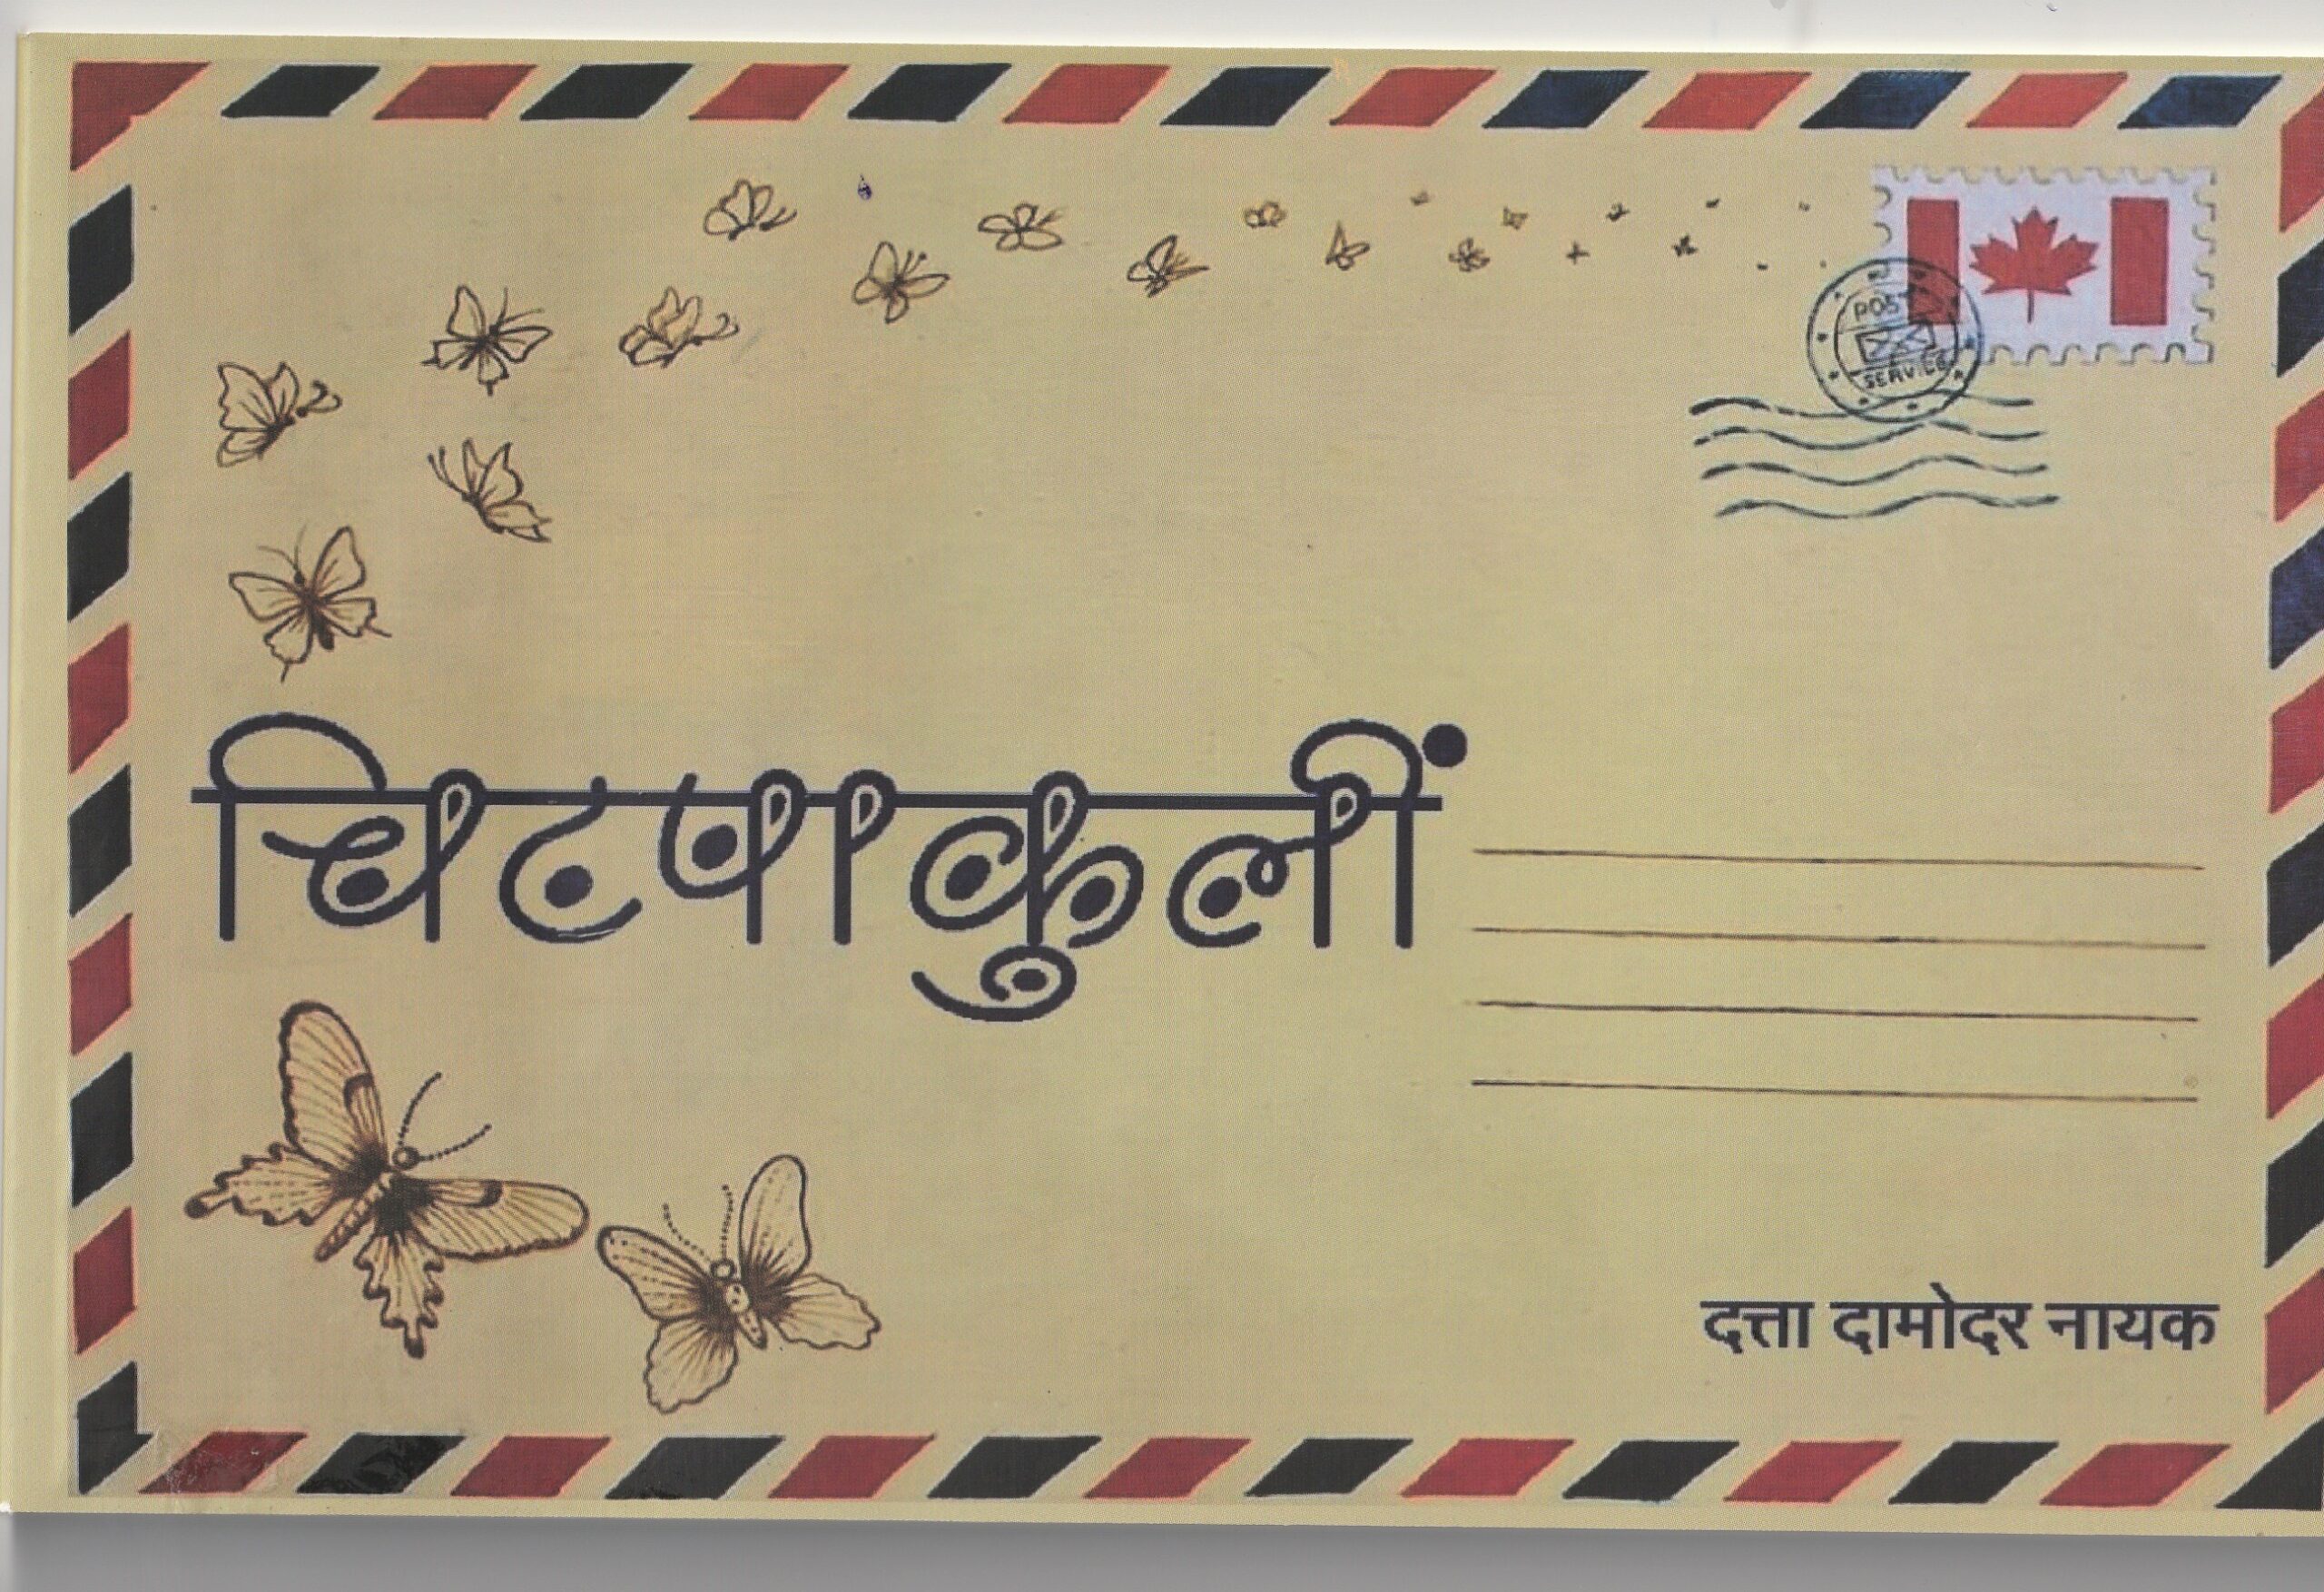 POST
SERVICE
चिटपाकुलीं
दत्ता दामोदर नायक